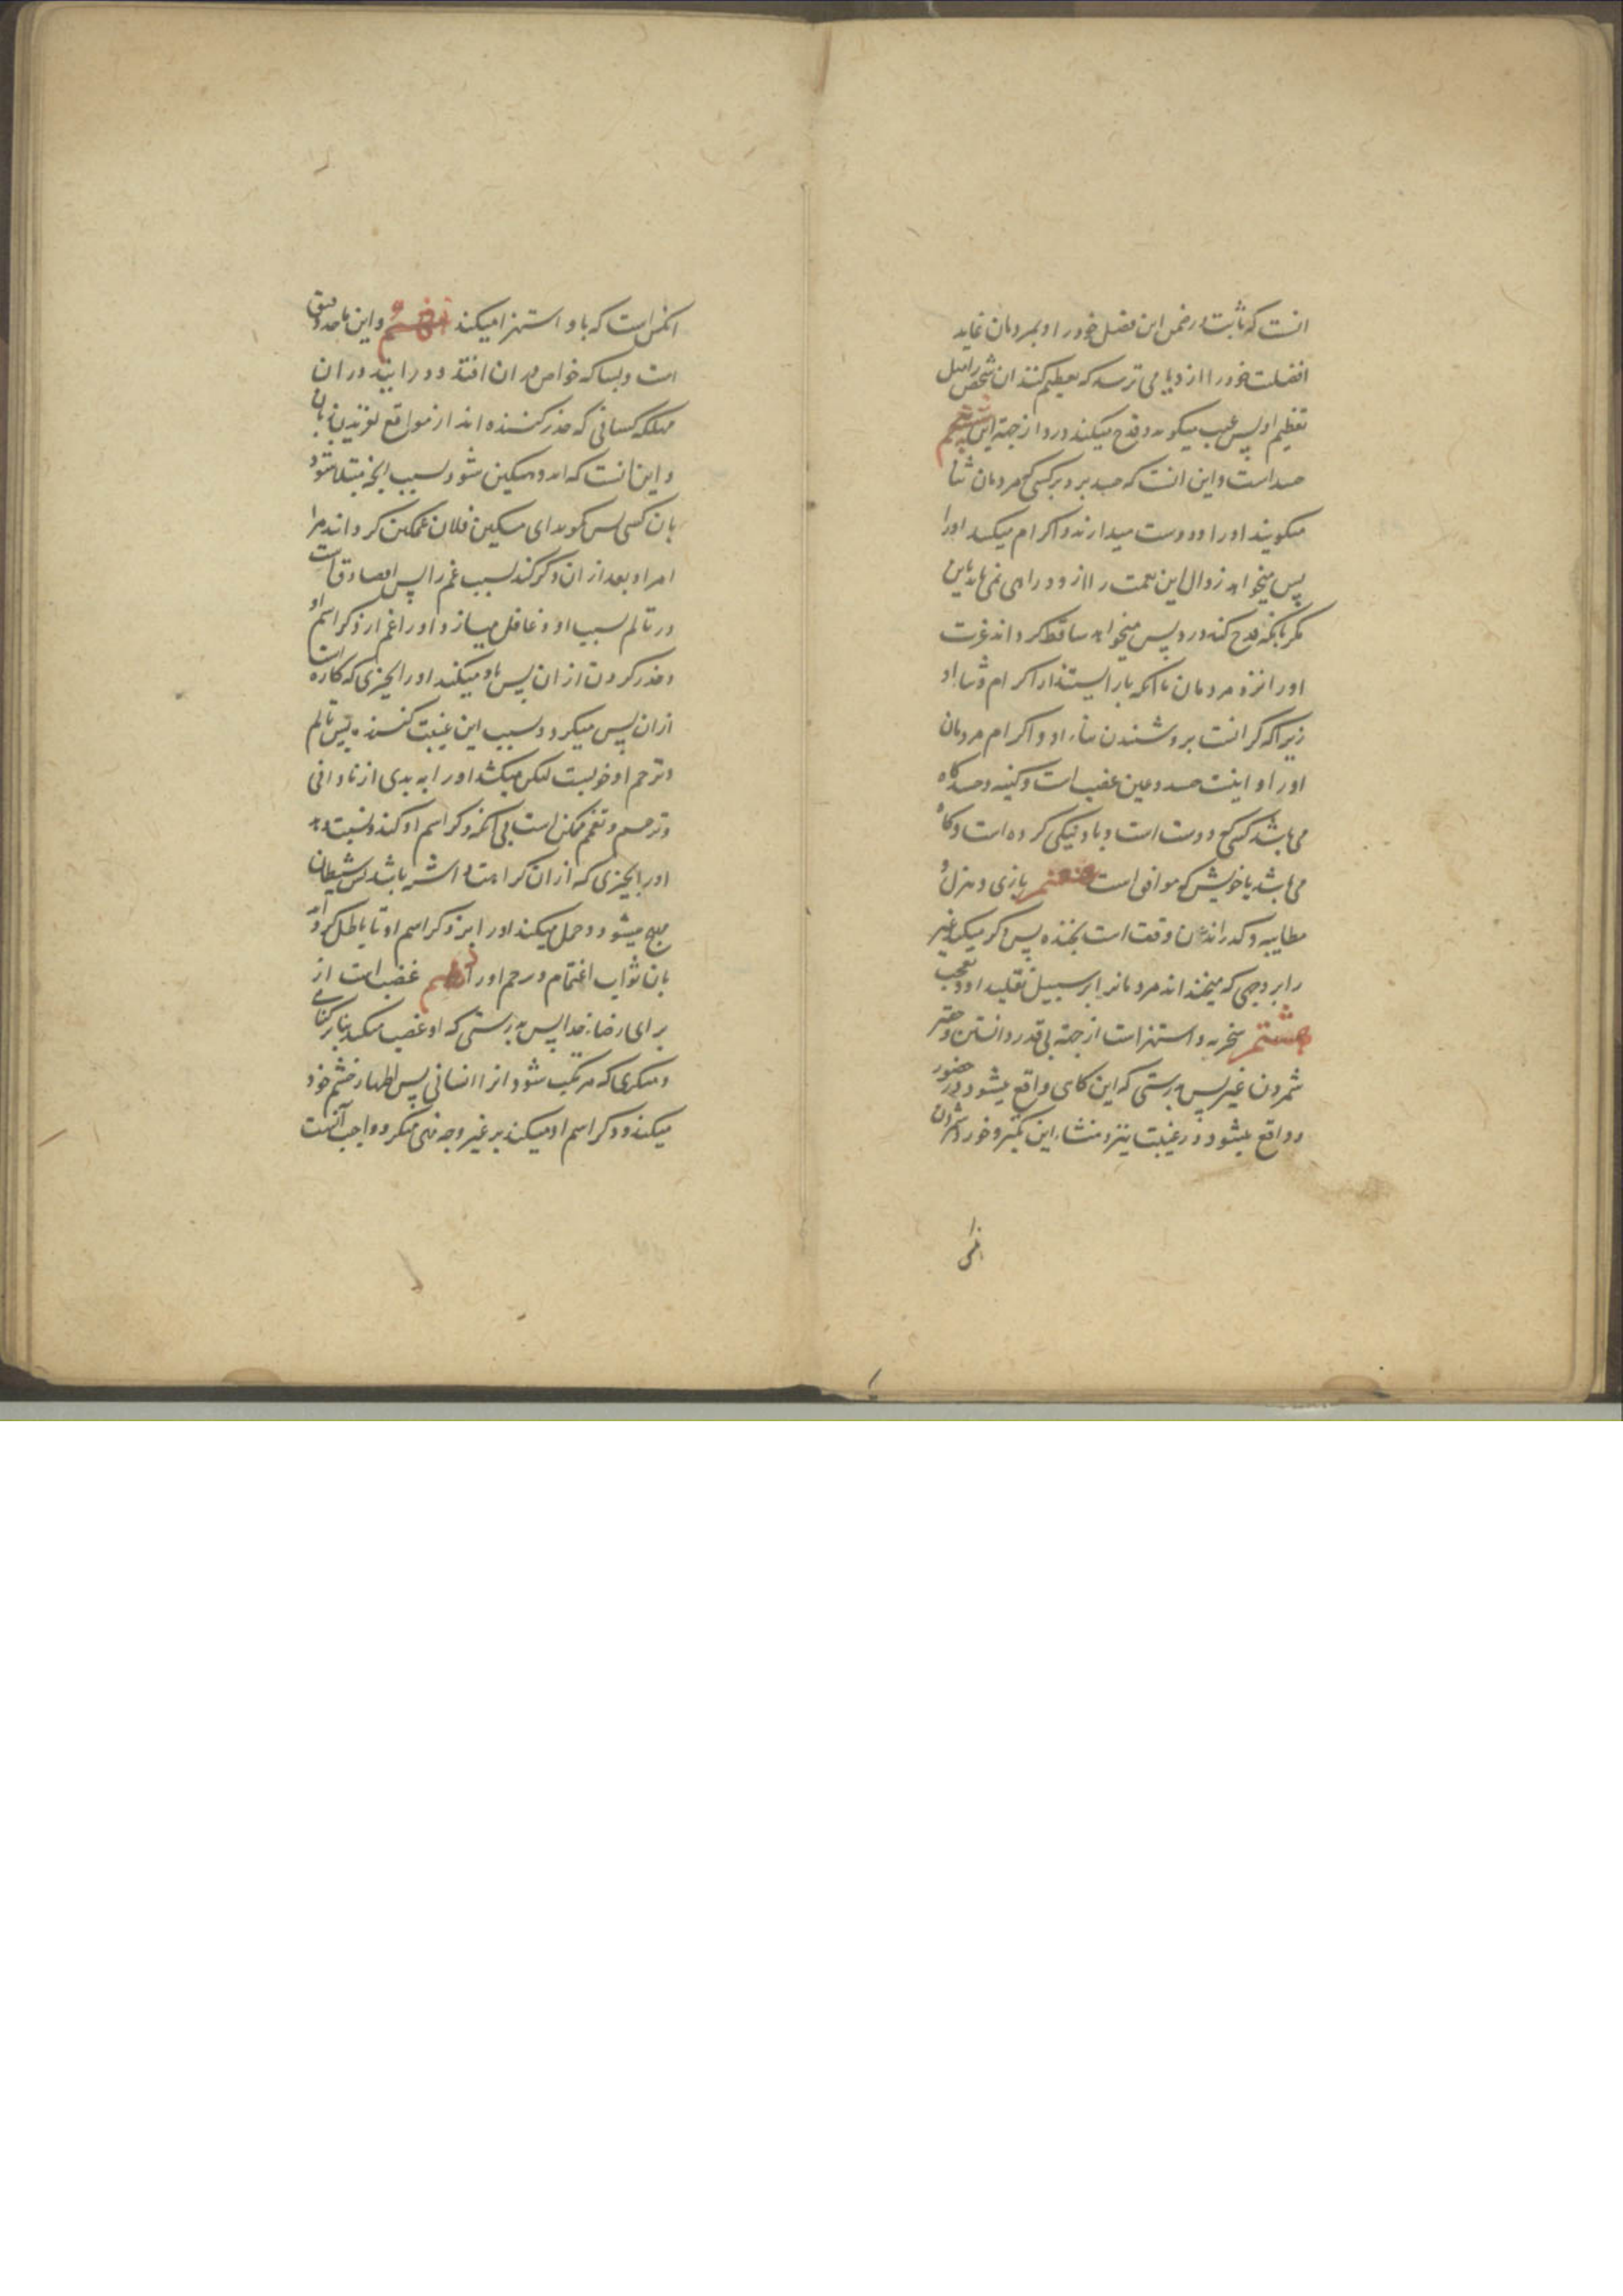 انست که ثابت در ضمن این فضل خود را و بمردمان نماید
افضلیت خود را از و یا می ترسد که تعظیم کنند ان شخص را مثل
تعظیم او پس عیب میکوید و قدح میکند در و از جهته این ششم
حسد است و این انست که حسد برد بر کسی که مردمان ثنا
میکویند او را و دوست میدارند و اکرام میکنند او را
پس میخواهد زوال این نعمت را از و و راهی نمی یابد باین
مکر بانکه قدح کند در و پس میخواهد ساقط کرداند عزت
او را نزد مردمان تا انکه باز ایستند از اکرام و ثناء او
زیرا که کرانست برو شنیدن ثناء او و اکرام مردمان
او را و اینست حسد و عین غضب است و کینه و حسد کاه
می باشد کسی که دوست است و باو نیکی کرده است و کاه
می باشد با خویش که موافق است هفتم بازی و هزل و
مطایبه و کذرانیدن وقت است بخنده پس ذکر میکند غیر
را بر وجهی که میخنداند مردمانرا بر سبیل تقلید او و تعجب
هشتم سخریه و استهزاست از جهته بی قدر دانستن و حقیر
شمردن غیر پس بدرستی که این کاهی واقع میشود در حضور
و واقع میشود در غیبت نیز و منشاء این تکبر و خورد شمردن
انکس
انکس است که باو استهزا میکند نهم و این ماخذ دقیق
است و بسا که خواص در ان افتند و در ایند در ان
مهلکه کسانی که حذر کننده اند از مواقع لغزیدن زبان
و این انست که اندوهکین شود بسبب انچه مبتلا شود
بان کسی پس کوید ای مسکین فلان غمکین کردانید مرا
امر او بعد از ان ذکر کند بسبب غم را پس او صادق است
در تالم بسبب او و غافل میسازد او را غم از ذکر اسم او
و حذر کردن از ان پس یاد میکند او را بچیزی که کاره است
از ان پس میکردد بسبب این غیبت کننده پس تالم
و ترحم او خوبست لیکن میکشد او را به بدی از نادانی
و ترحم و تغمم ممکن است بی انکه ذکر اسم او کند و نسبت دهد
او را بچیزی که از ان کراهت داشته باشد پس شیطان
مهیج میشود و حمل میکند او را بر ذکر اسم او تا باطل کرداند
بان ثواب اغتمام و ترحم او را دهم غضب است از
برای رضاء خدا پس بدرستی که او غضب میکند بنا بر کناهی
و منکری که مرتکب شود انرا انسانی پس اظهار خشم خود
میکند و ذکر اسم او میکند بر غیر وجه نهی منکر و واجب آنست